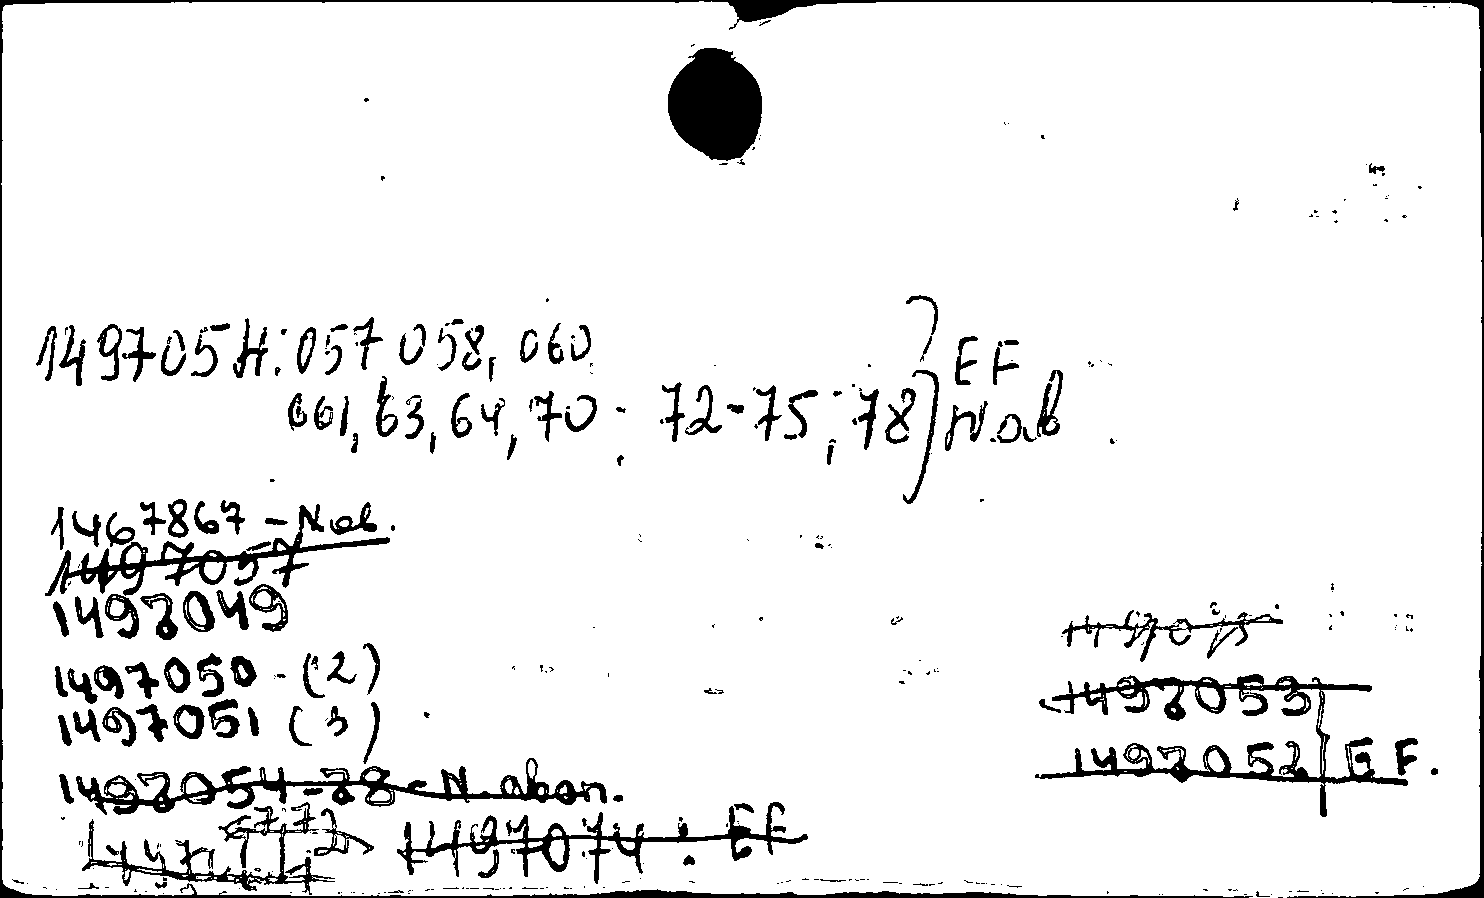 1497054: 057, 058, 060
061, 63, 64, 70; 72-75; 78 } EF
N.ab
1467867 - Nab.
1497057
1497049
1497050 - (2)
1497051 (3)
1497054-78 - N. abon.
1497074: EF
1497053
1497052 EF.